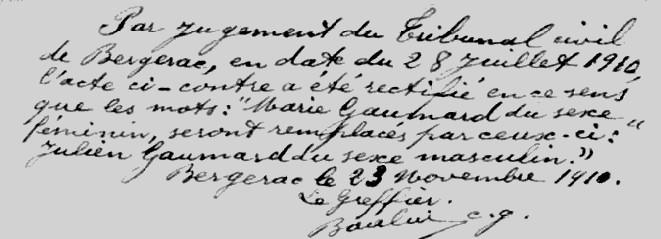 Par jugement du Tribunal civil
de Bergerac, en date du 28 Juillet 1910,
l'acte ci-contre a été rectifié en ce sens
que les mots: "Marie Gaumard du sexe
féminin, seront remplacés par ceux-ci: "
Julien Gaumard du sexe masculin."
Bergerac le 23 Novembre 1910.
Le Greffier.
c.g.